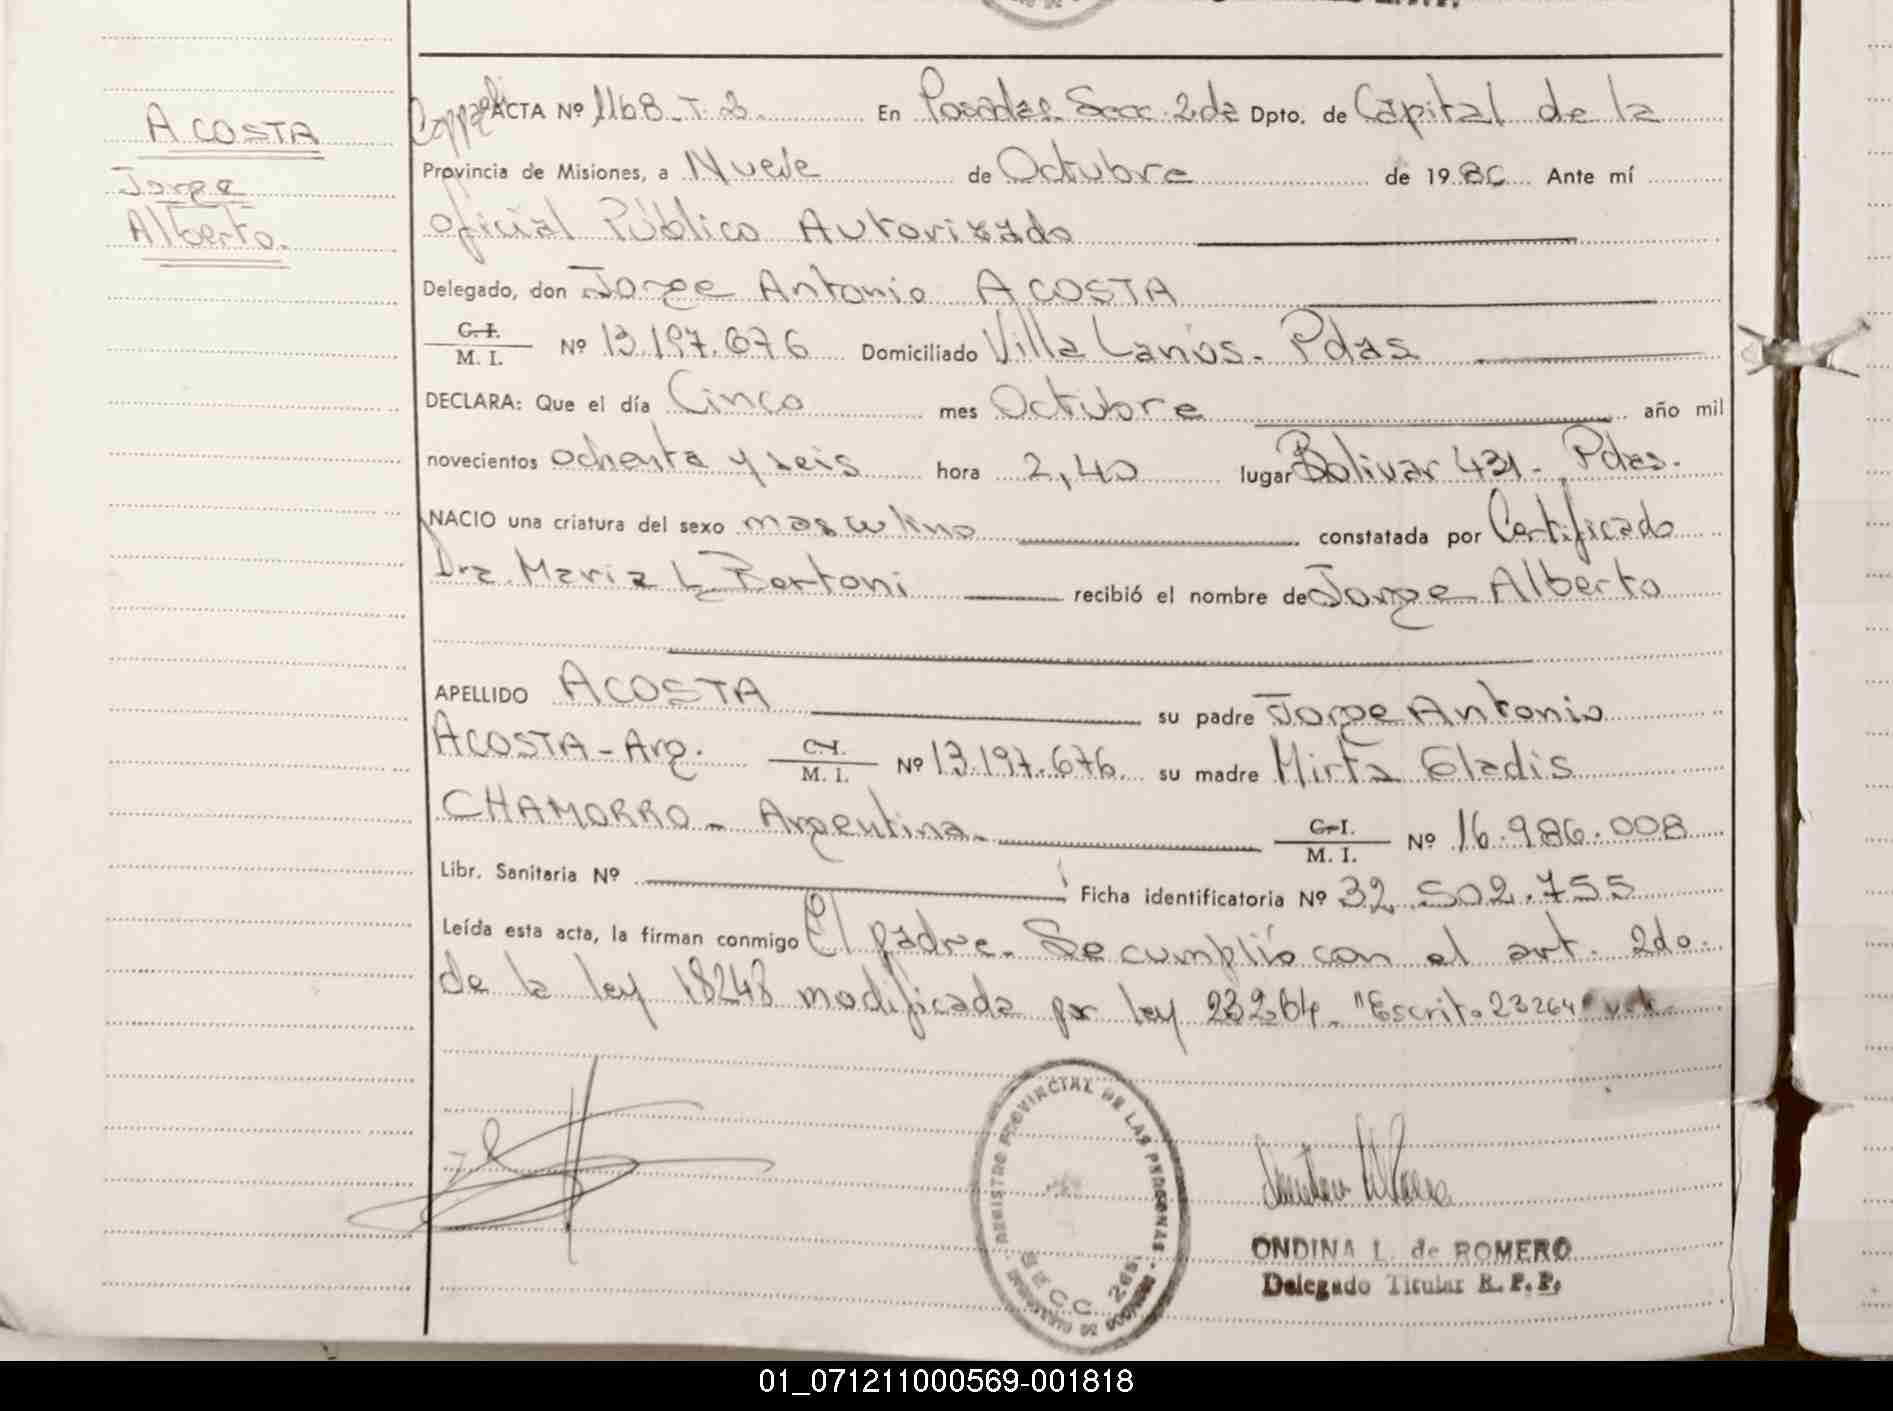 ACOSTA
Jorge
Alberto.
ACTA Nº 1168-T-3. En Posadas Secc 2da Dpto. de Capital de la
Provincia de Misiones, a Nueve de Octubre de 1986 Ante mí
oficial Público Autorizado
Delegado, don Jorge Antonio ACOSTA
C.I. M. I. Nº 13.197.676 Domiciliado Villa Lanús. Pdas
DECLARA: Que el día Cinco mes Octubre año mil
novecientos ochenta y seis hora 2,40 lugar Bolivar 431 - Pdas.
NACIO una criatura del sexo masculino constatada por Certificado
Dra. Maria L Bertoni recibió el nombre de Jorge Alberto
APELLIDO ACOSTA su padre Jorge Antonio
ACOSTA - Arg. C.I. M. I. Nº 13.197.676 su madre Mirta Gladis
CHAMORRO - Argentina - C.I. M. I. Nº 16.986.008
Libr. Sanitaria Nº Ficha identificatoria Nº 32.502.755
Leída esta acta, la firman conmigo El padre. Se cumplió con el art. 2do.
de la ley 18248 modificada por ley 23264. "Escrito 23264"
REGISTRO PROVINCIAL DE LAS PERSONAS
SECC. 2da.
ONDINA L. de ROMERO
Delegado Titular R. P. P.
01_071211000569-001818